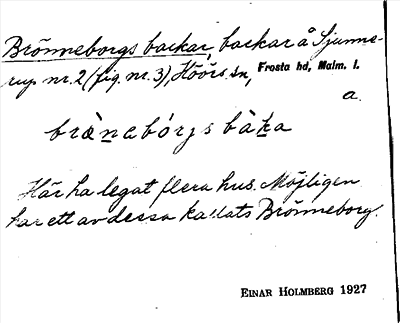 Brönneborgs backar, backar å Sjunne-
rup nr. 2 (fig. nr. 3), Höörs sn, Frosta hd, Malm. l.
a.
brænabórjs bàka
Här ha legat flera hus. Möjligen
har ett av dessa kallats Brönneborg.
EINAR HOLMBERG 1927